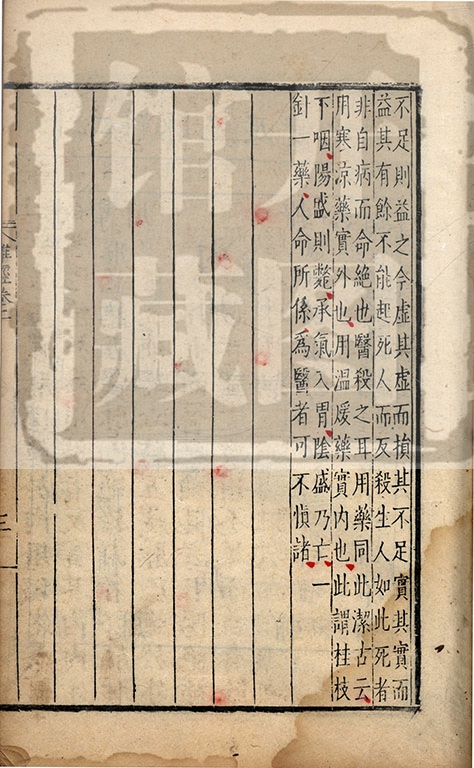 不足則益之今虛其虛而損其不足實其實而
益其有餘不能起死人而反殺生人如此死者
非自病而命絕也醫殺之耳用藥同此潔古云
用寒涼藥實外也用溫煖藥實內也此謂桂枝
下咽陽盛則斃承氣入胃陰盛乃亡一
針一藥人命所係為醫者可不慎諸
難經卷
館
藏